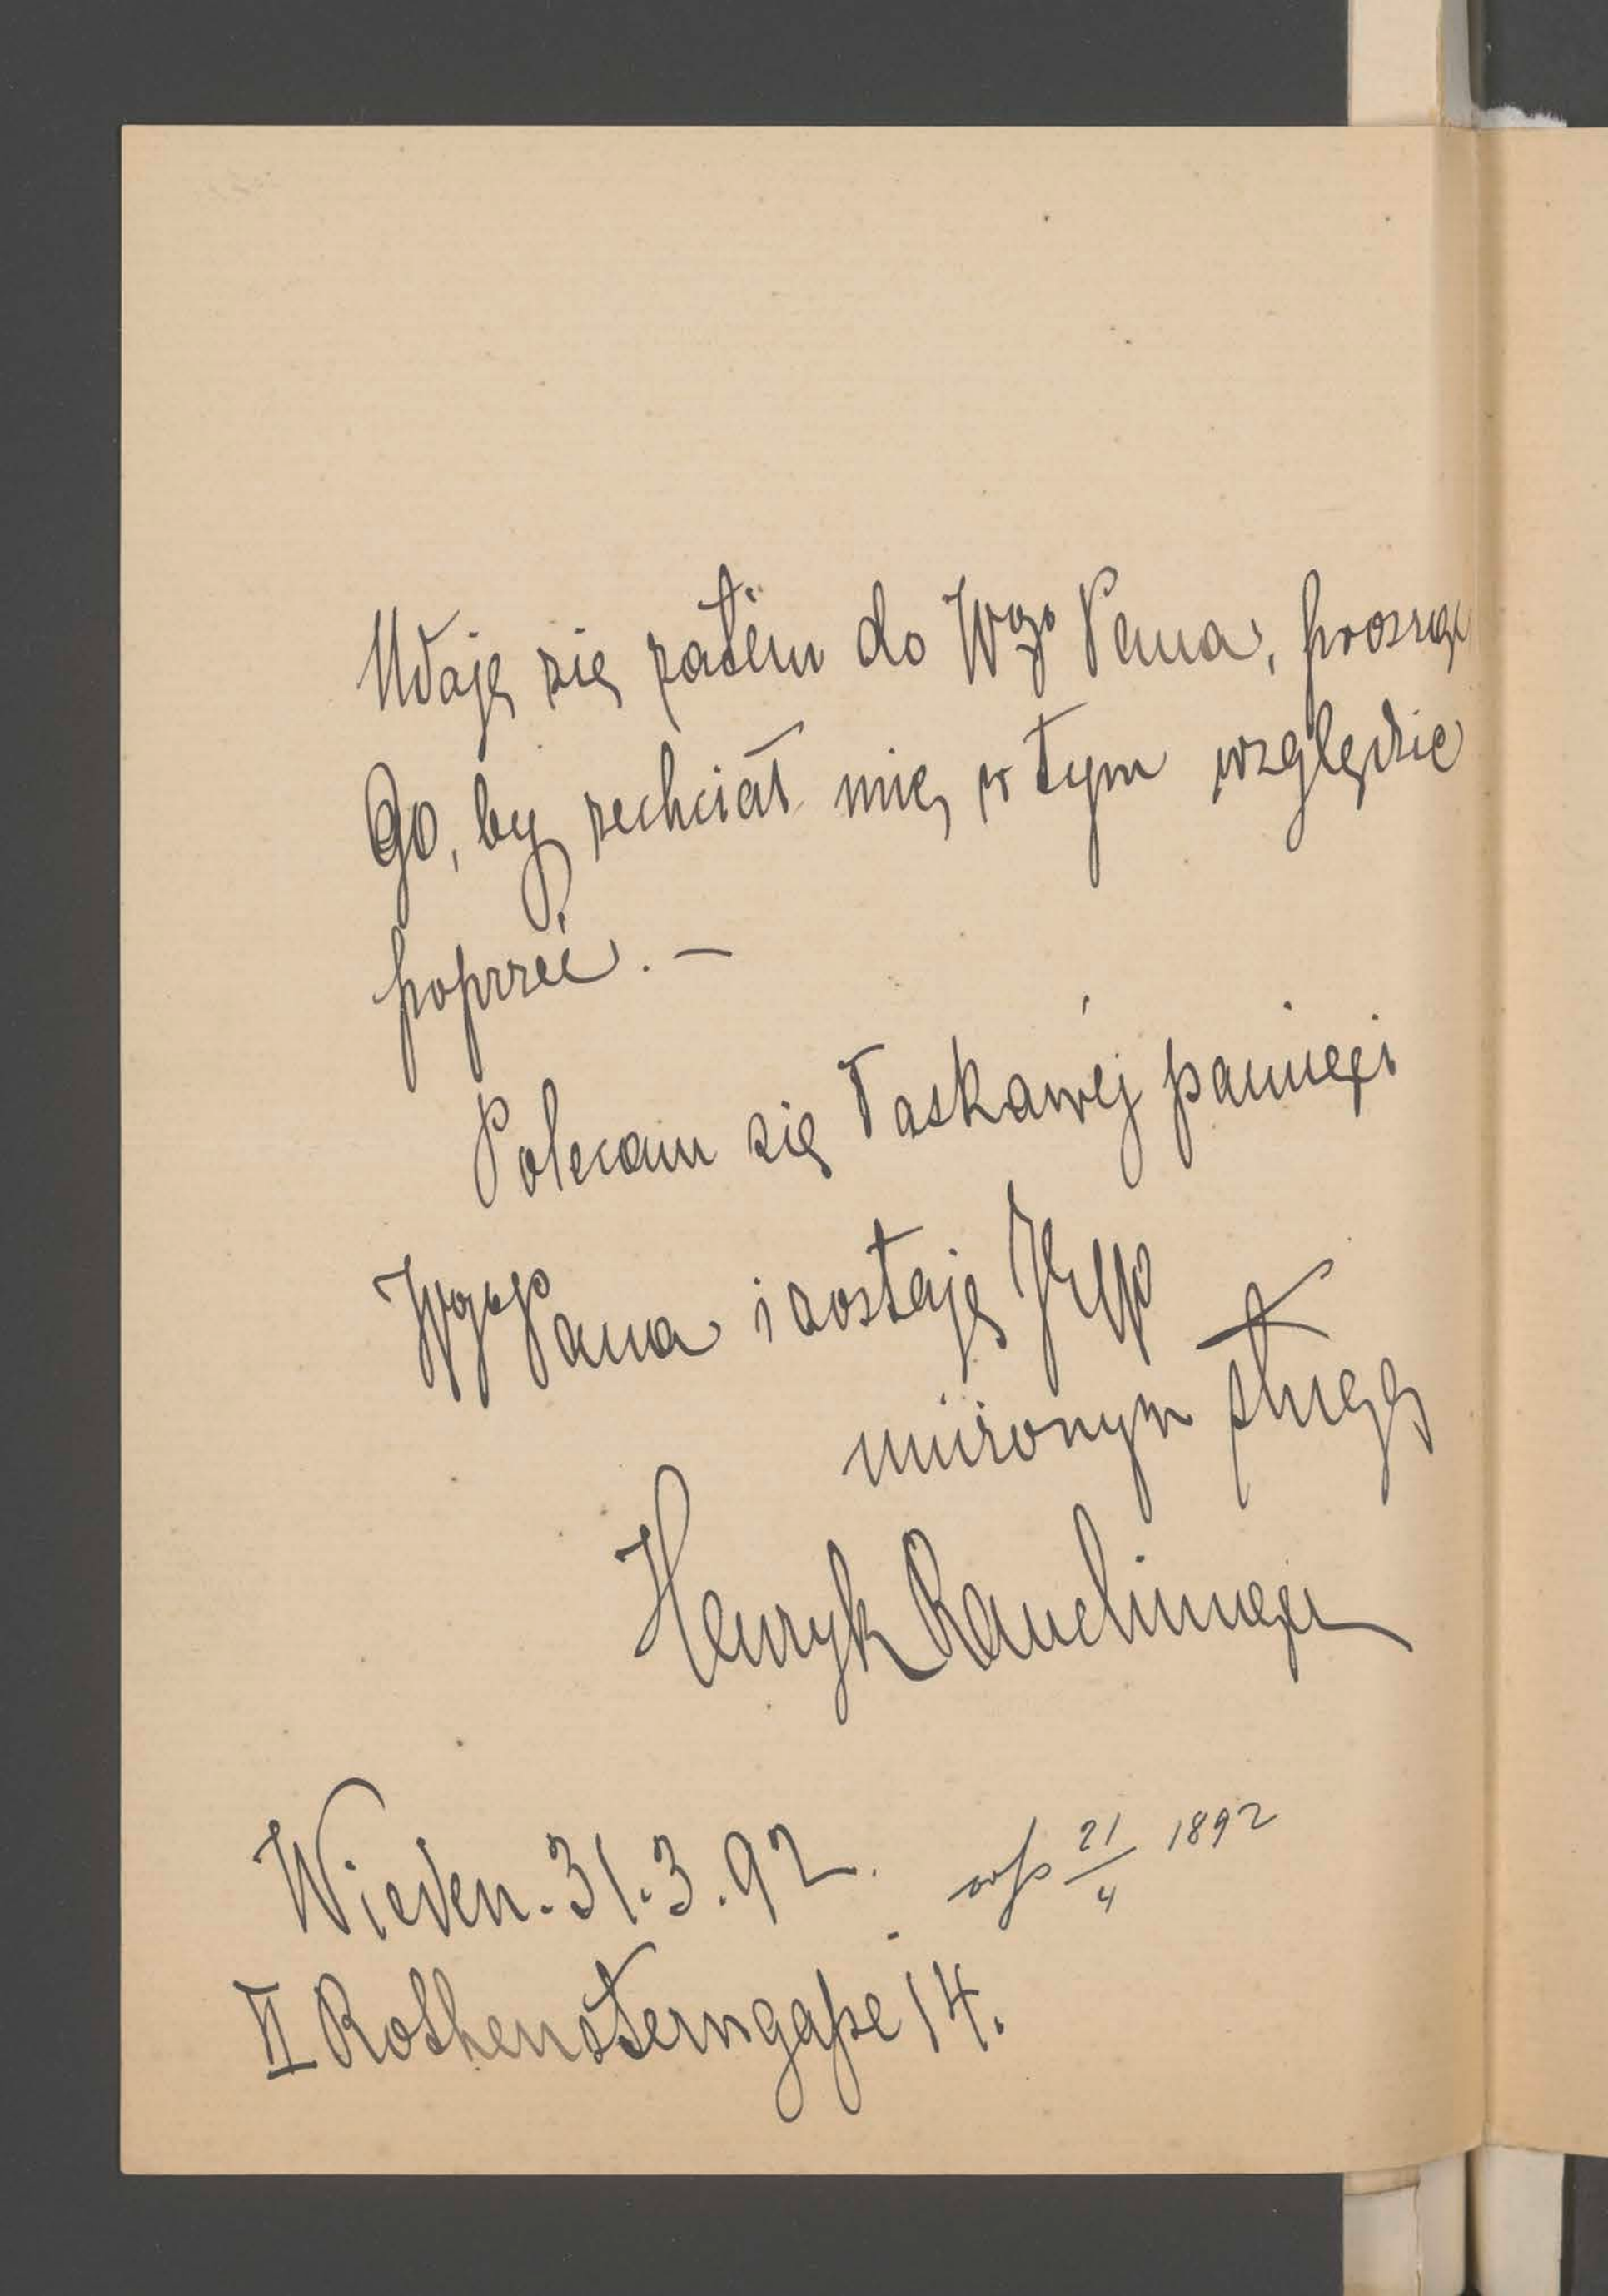 Udaję się zatém do Wgo Pana, prosząc
Go, by zechciał mię w tym względzie
poprzeć. —
Polecam się łaskawéj pamięci
Wgo Pana i zostaję
uniżonym sługą
Henryk Rauchinger
Wiedeń. 31. 3. 92.
21/4 1892
II Rothensterngaße 14.